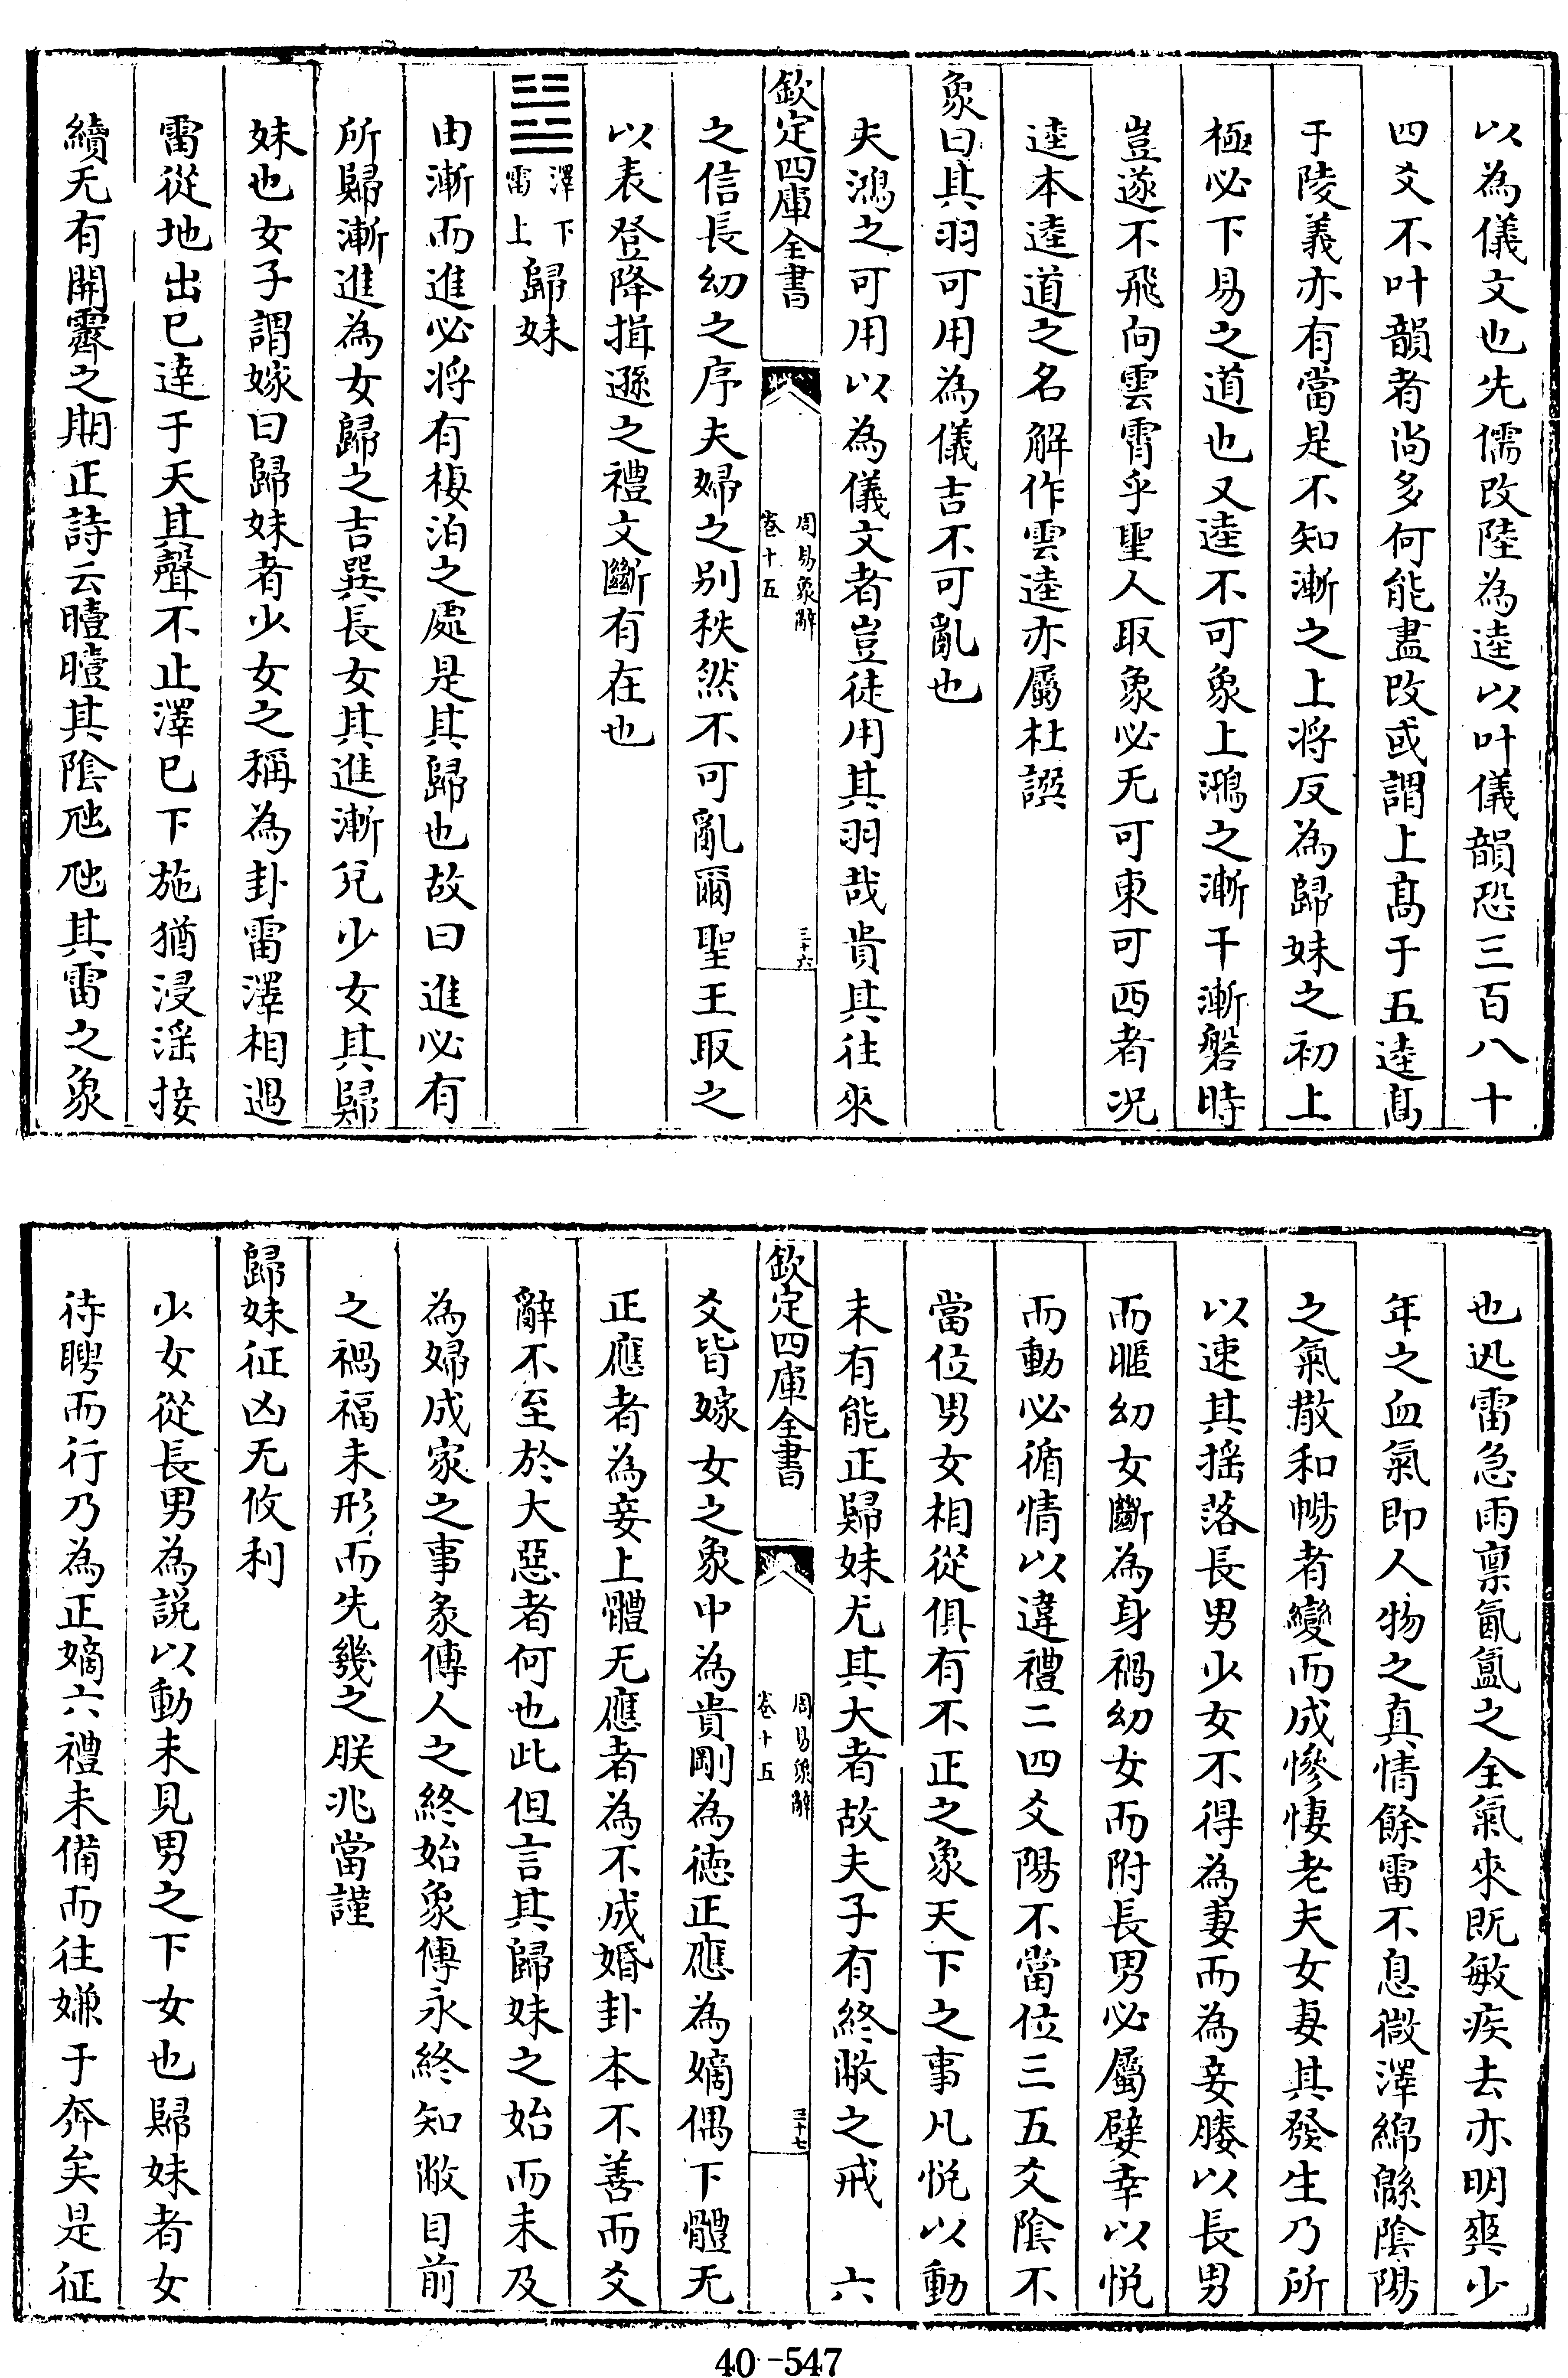 以為儀文也先儒改陸為逵以叶儀韻恐三百八十
四爻不叶韻者尚多何能盡改或謂上髙于五逵髙
于陵義亦有當是不知漸之上將反為歸妹之初上
極必下易之道也又逵不可象上鴻之漸干漸磐時
豈遂不飛向雲霄乎聖人取象必无可東可西者况
逵本逵道之名解作雲逵亦屬杜譔
象曰其羽可用為儀吉不可亂也
夫鴻之可用以為儀文者豈徒用其羽哉貴其往來
欽定四庫全書
周易象辭
卷十五
三十六
之信長幼之序夫婦之别秩然不可亂爾聖王取之
以表登降揖遜之禮文斷有在也
䷵
澤下
雷上
歸妹
由漸而進必将有棲泊之處是其歸也故曰進必有
所歸漸進為女歸之吉巽長女其進漸兌少女其歸
妹也女子謂嫁曰歸妹者少女之稱為卦雷澤相遇
雷從地出已逹于天其聲不止澤已下施猶浸淫接
續无有開霽之期正詩云曀曀其隂虺虺其雷之象
也迅雷急雨禀氤氲之全氣來既敏疾去亦明爽少
年之血氣即人物之真情餘雷不息微澤綿緜隂陽
之氣散和暢者變而成慘悽老夫女妻其發生乃所
以速其揺落長男少女不得為妻而為妾媵以長男
而暱幼女斷為身禍幼女而附長男必屬嬖幸以悦
而動必循情以違禮二四爻陽不當位三五爻隂不
當位男女相從俱有不正之象天下之事凡悦以動
未有能正歸妹尤其大者故夫子有終敝之戒　六
欽定四庫全書
周易象辭
卷十五
三十七
爻皆嫁女之象中為貴剛為徳正應為嫡偶下體无
正應者為妾上體无應者為不成婚卦本不善而爻
辭不至於大惡者何也此但言其歸妹之始而未及
為婦成家之事彖傳人之終始象傳永終知敝目前
之禍福未形而先幾之朕兆當謹
歸妹征凶无攸利
少女從長男為說以動未見男之下女也歸妹者女
待聘而行乃為正嫡六禮未備而往嫌于奔矣是征
40-547